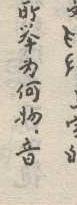 所举为何物，音